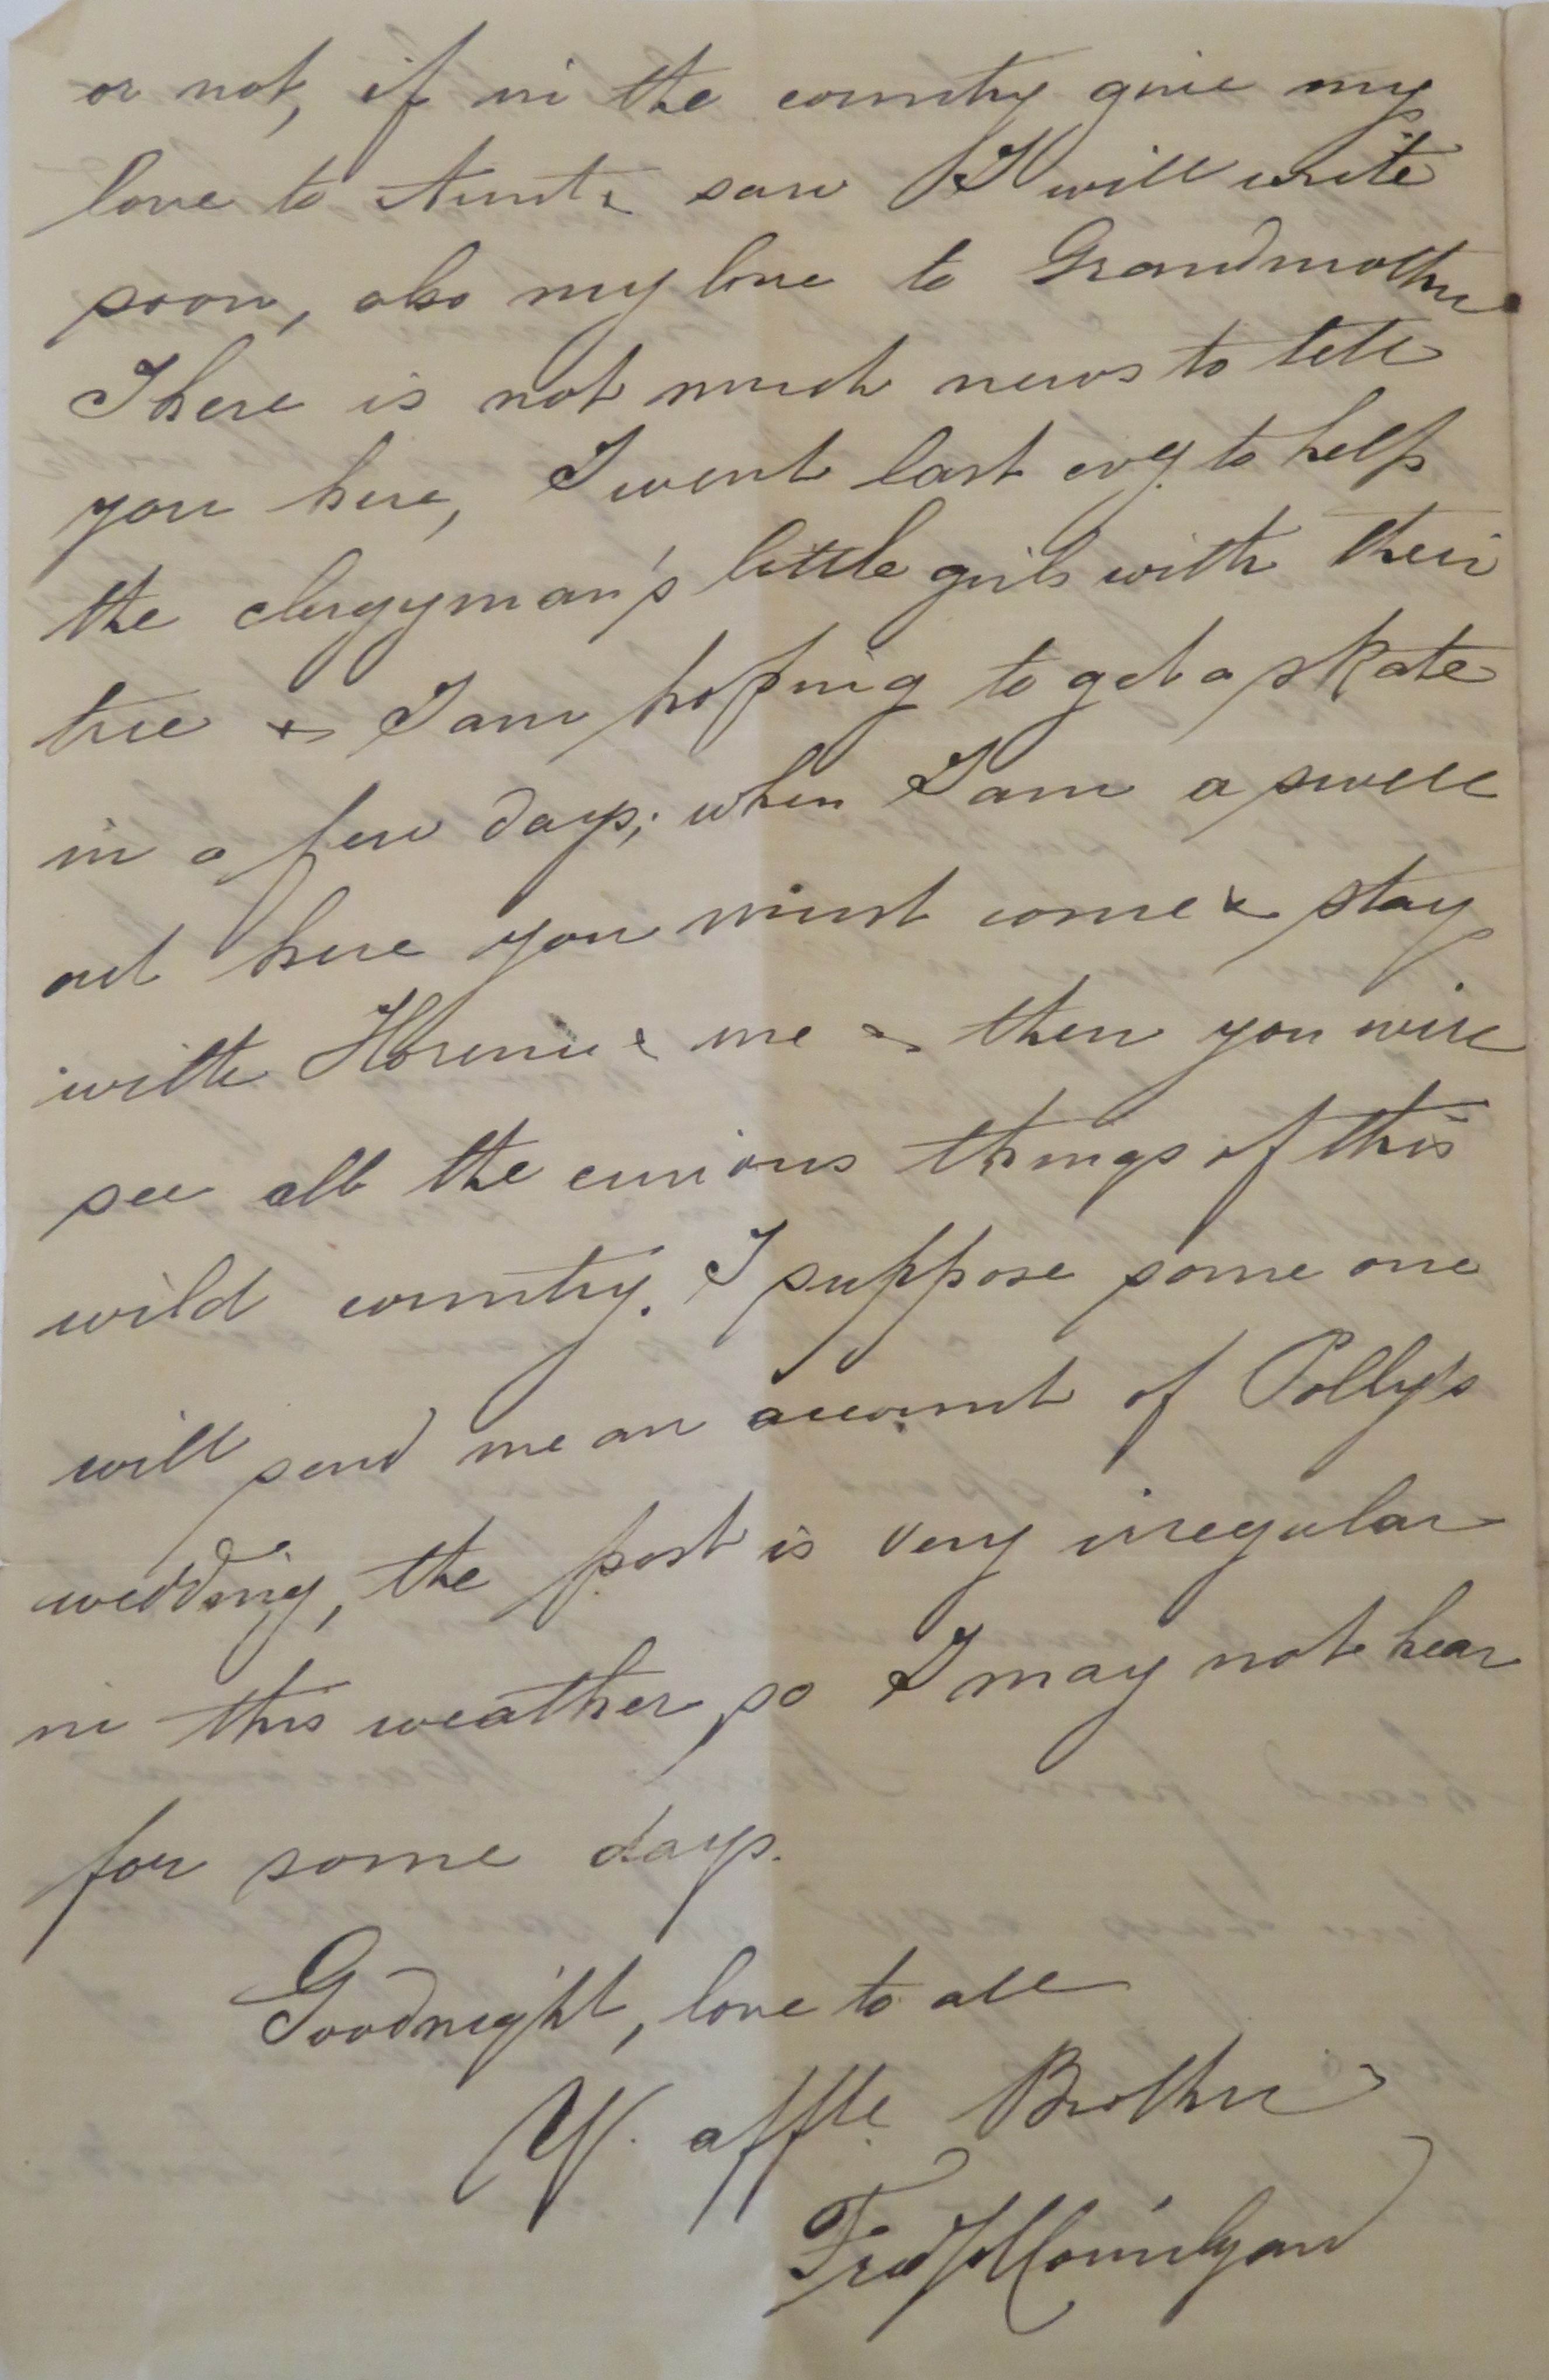 or not, if in the country give my
love to Aunt & say I will write
soon, also my love to Grandmother
There is not much news to tell
you here, I went last evg. to help
the clergyman's little girls with their
tree & I am hoping to get a skate
in a few days; when I am a swell
out here you must come & stay
with Florence & me & then you will
see all the curious things of this
wild country. I suppose some one
will send me an account of Polly's
wedding, the post is very irregular
in this weather so I may not hear
for some days.
Goodnight, love to all
Yr. affte Brother
Fred